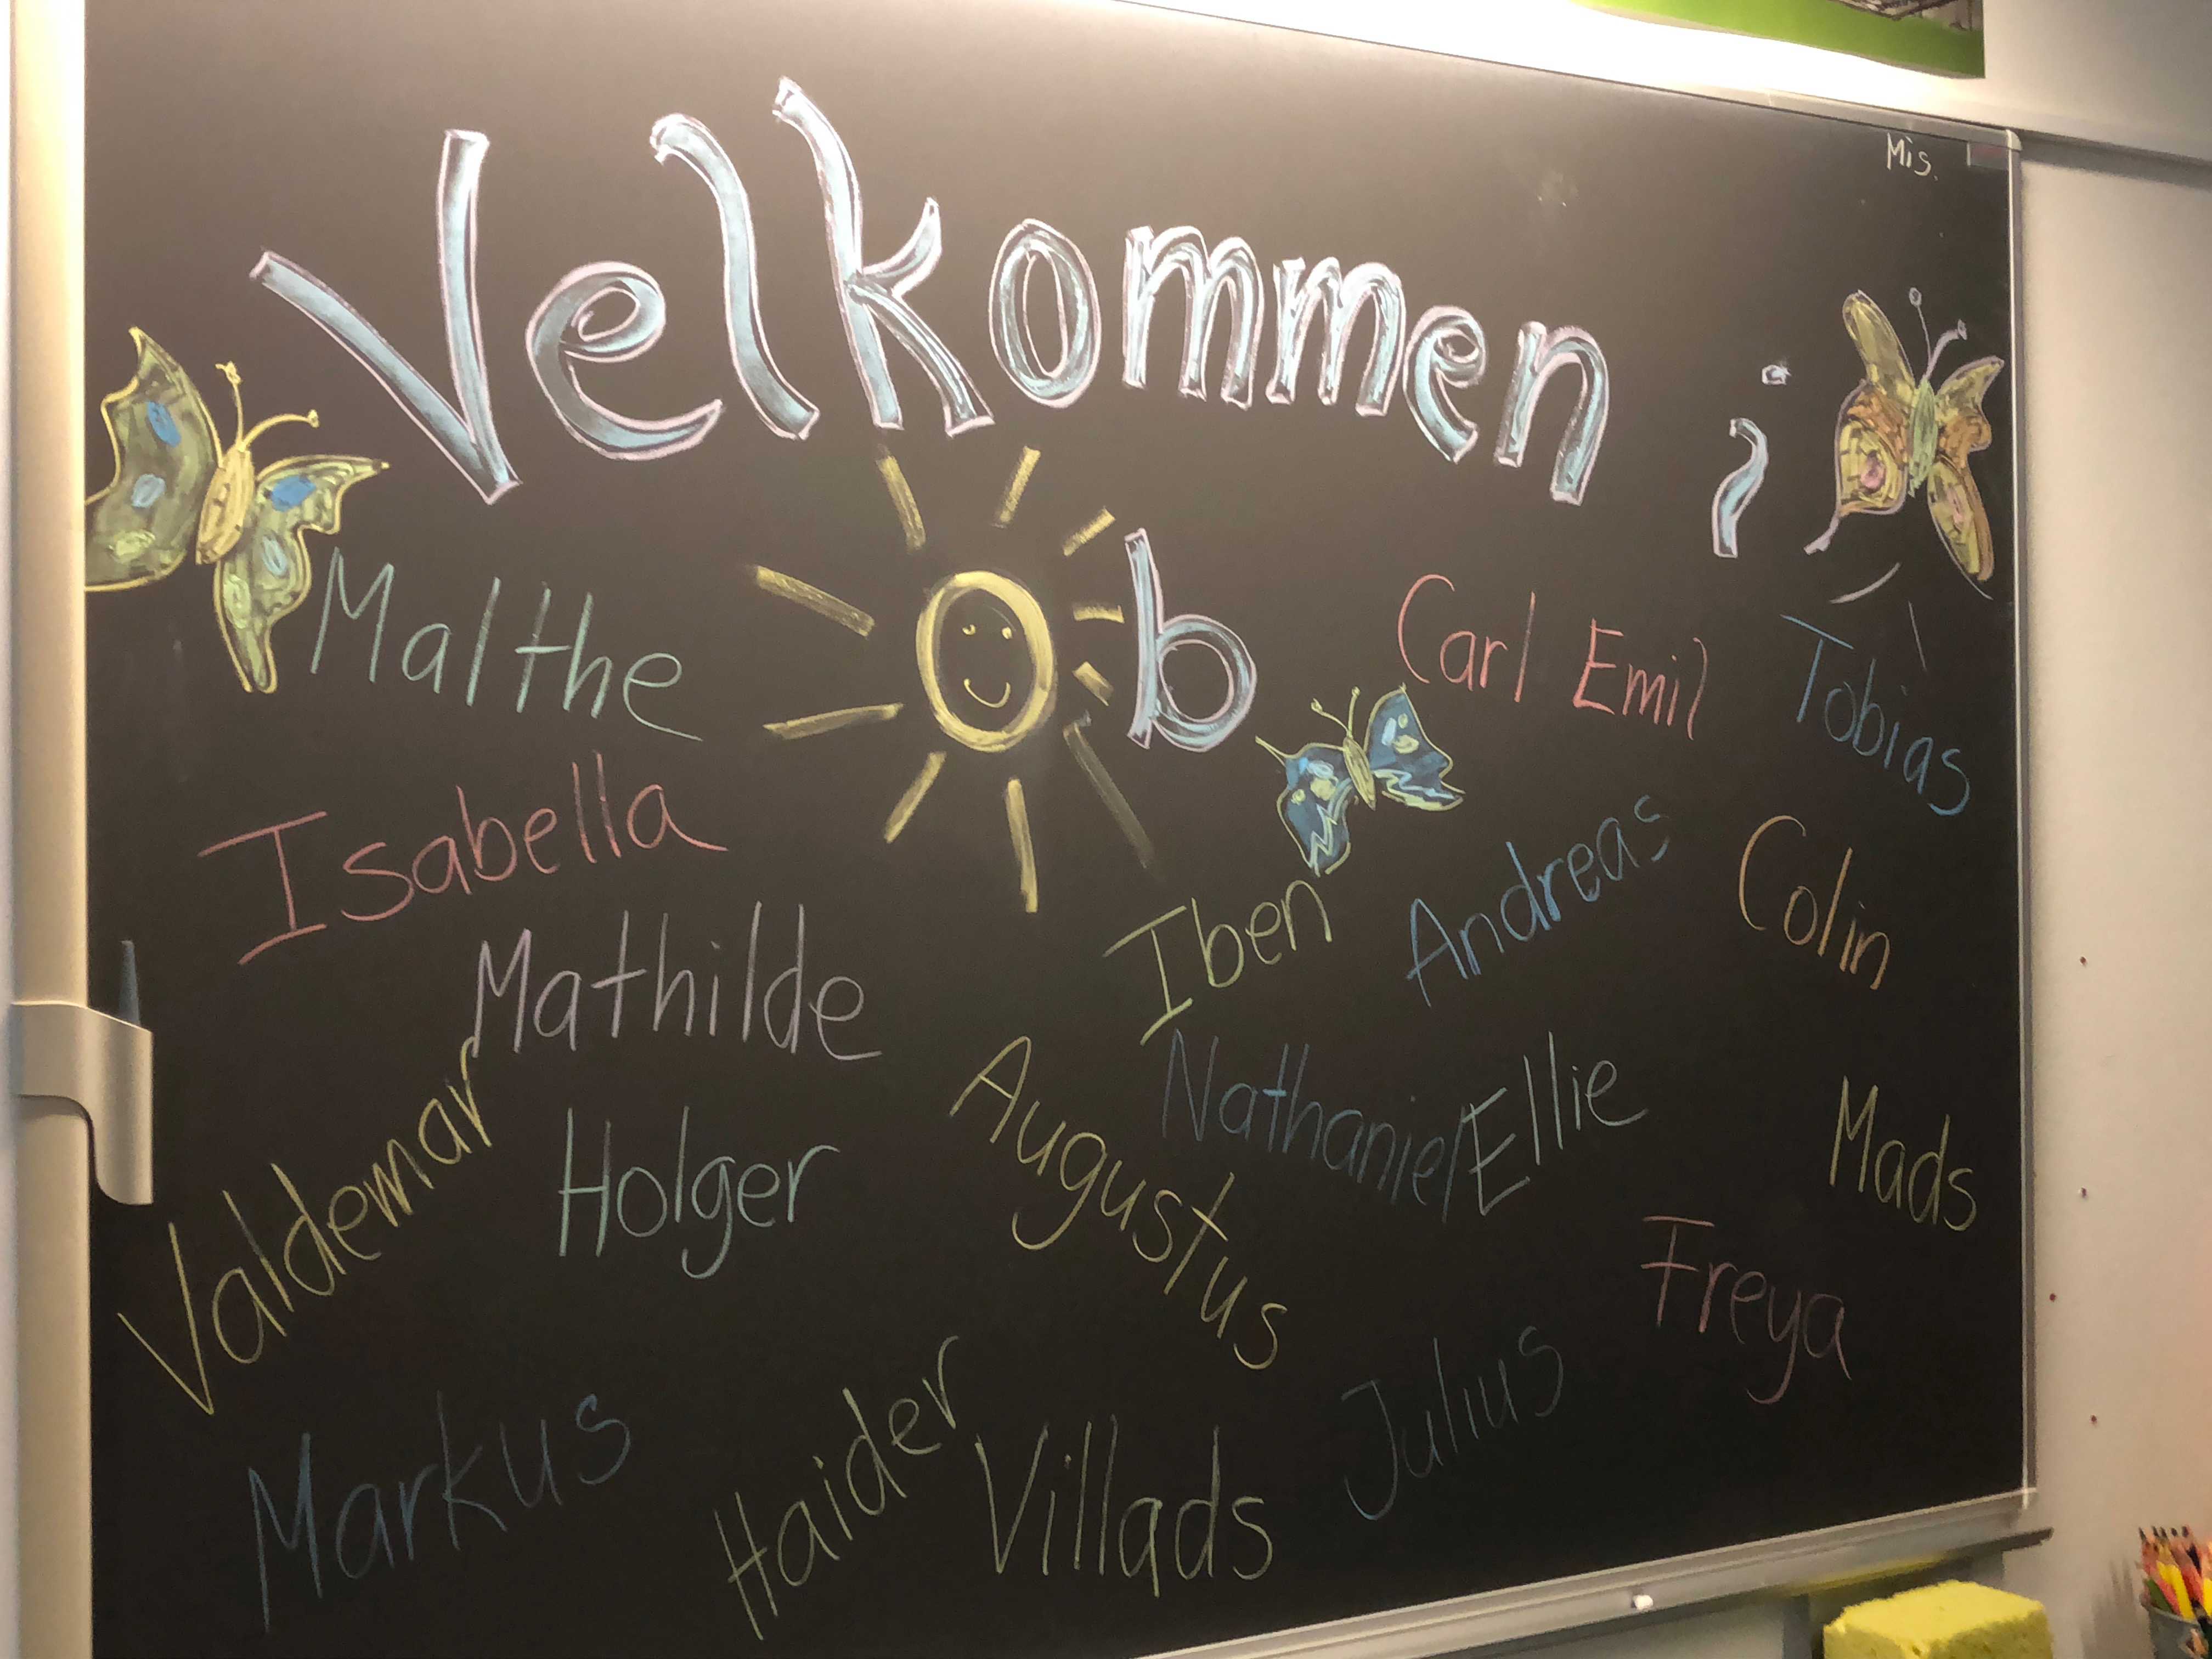 Mis.
Velkommen i
0 b
Malthe
Carl Emil
Tobias
Isabella
Iben
Andreas
Colin
Mathilde
Valdemar
Holger
Augustus
Nathaniel
Ellie
Mads
Freya
Markus
Haider
Villads
Julius